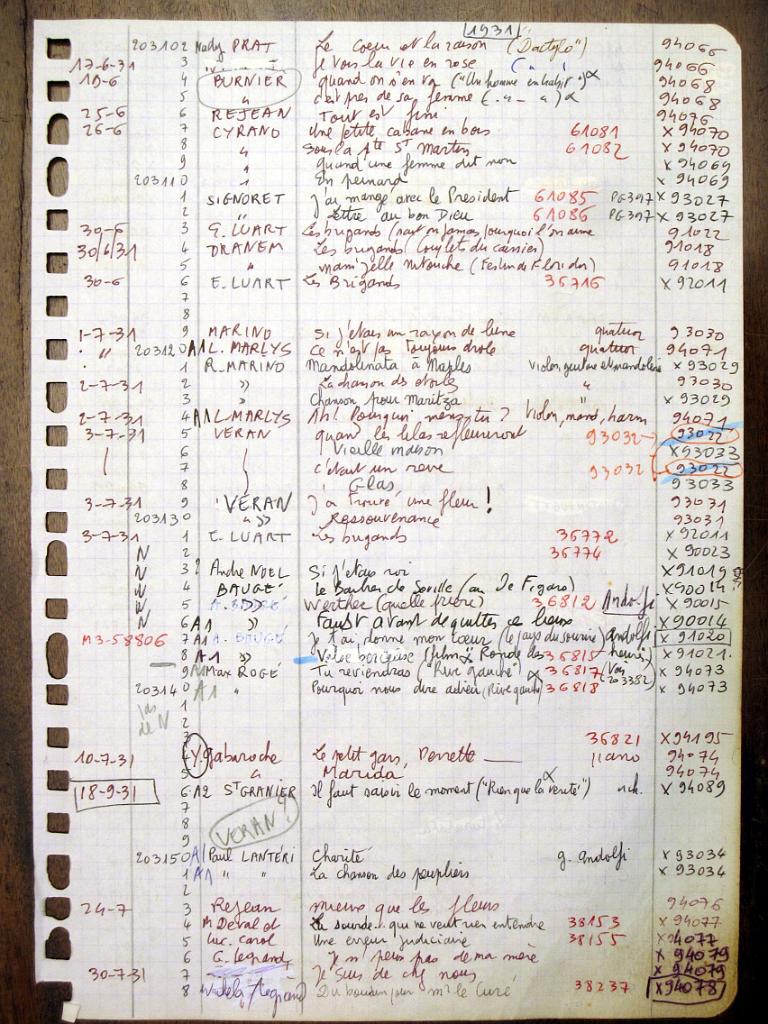 1931
203102 Nady PRAT Le coeur et la raison ("Dactylo") 94066
17-6-31 3 Je vois la vie en rose 94066
10-6 4 BURNIER quand on s'en va ("Un homme en habit") 94068
5 " c'est pres de sa femme 94068
25-6 6 REJEAN Tout est fini 94076
26-6 7 CYRANO Une petite cabane en bois 61081 X 94070
8 " Sous la Pte St Martin 61082 X 94070
9 " quand une femme dit non X 94069
203110 " En peinard X 94069
1 SIGNORET J'ai mangé avec le President 61085 PG397 X 93027
2 " Lettre au bon Dieu 61086 PG397 X 93027
30-6 3 G. LUART Les brigands 91022
30/6/31 4 DRANEM Les brigands (Couplets du caissier) 91018
5 " Mam'zelle Nitouche 91018
30-6 6 E. LUART Les Brigands 36716 X 92011
7
8
1-7-31 9 MARINO Si j'étais un rayon de lune quatuor 93030
" 203120 A1 L. MARLYS Ce n'est pas toujours drole quatuor 94071
1 R. MARINO Mandolinata à Naples Violon, guitare et mandoline X 93029
2-7-31 2 » La chanson des etoiles " 93030
3 » Chanson pour Maritza X 93029
2-7-31 4 A1 L-MARLYS Ah! Pourquoi mens-tu? Violon, mand, harm 94071
3-7-31 5 VERAN quand les lilas refleuriront 93032 93022
6 Vieille maison X 93033
7 c'etait un reve 93032 93022
8 Glas 93033
3-7-31 9 VERAN J'ai trouvé une fleur! 93031
203130 » Ressouvenance 93031
3-7-31 1 E. LUART Les brigands 36772 X 92011
N 2 36774 X 90023
N 3? André NOEL Si j'etais roi X 91019
N 4 BAUGÉ Le Barbier de Seville (air De Figaro) X 90014
N 5 A. BAUGÉ Werther 36812 Andolfi X 90015
N 6 A1 » Faust avant de quitter ce lieux X 90014
M3-58806 7 A1 A. BAUGÉ Je t'ai donné mon coeur (le pays du sourire) andolfi X 91020
8 A1 » Valse berceuse (film "Ronde des heures) 36815 X 91021
9 A1 Max ROGÉ Tu reviendras ("Rive gauche") 36817 (Voir 203382) X 94073
203140 A1 " Pourquoi nous dire adieu (Rive gauche) 36818 X 94073
1
pas de N 2
3 36821 X 94195
10-7-31 4 Y. Gabaroche Le petit gars, Perrette piano 94074
5 " Marida 94074
18-9-31 6 A2 St GRANIER Il faut saisir le moment ("Rien que la verité") X 94089
7
8 VERAN?
9
203150 A1 Paul LANTÉRI Charité g. andolfi X 93034
1 A1 " " La chanson des peupliers X 93034
2
24-7 3 Rejean mieux que les fleurs 94076
4 M Deval d La sourde... qui ne veut rien entendre 38153 X 94077
5 Luc. carol Une erreur judiciaire 38155 X 94077
6 G. legrand J'n'peux pas de ma mère X 94079
30-7-31 7 Je suis de chez nous X 94079
8 Du boudin pour mr le Curé 38237 X 94078